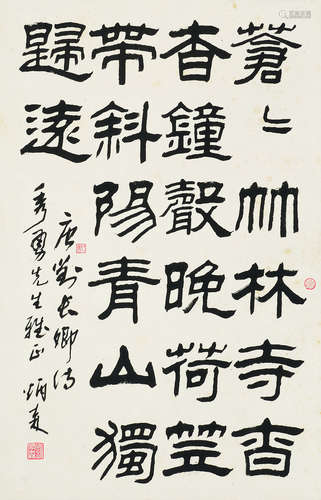 蒼〻竹林寺杳
杳鐘聲晚荷笠
帶斜陽青山獨
歸遠
唐劉長卿詩
秀勇先生雅正 炳森